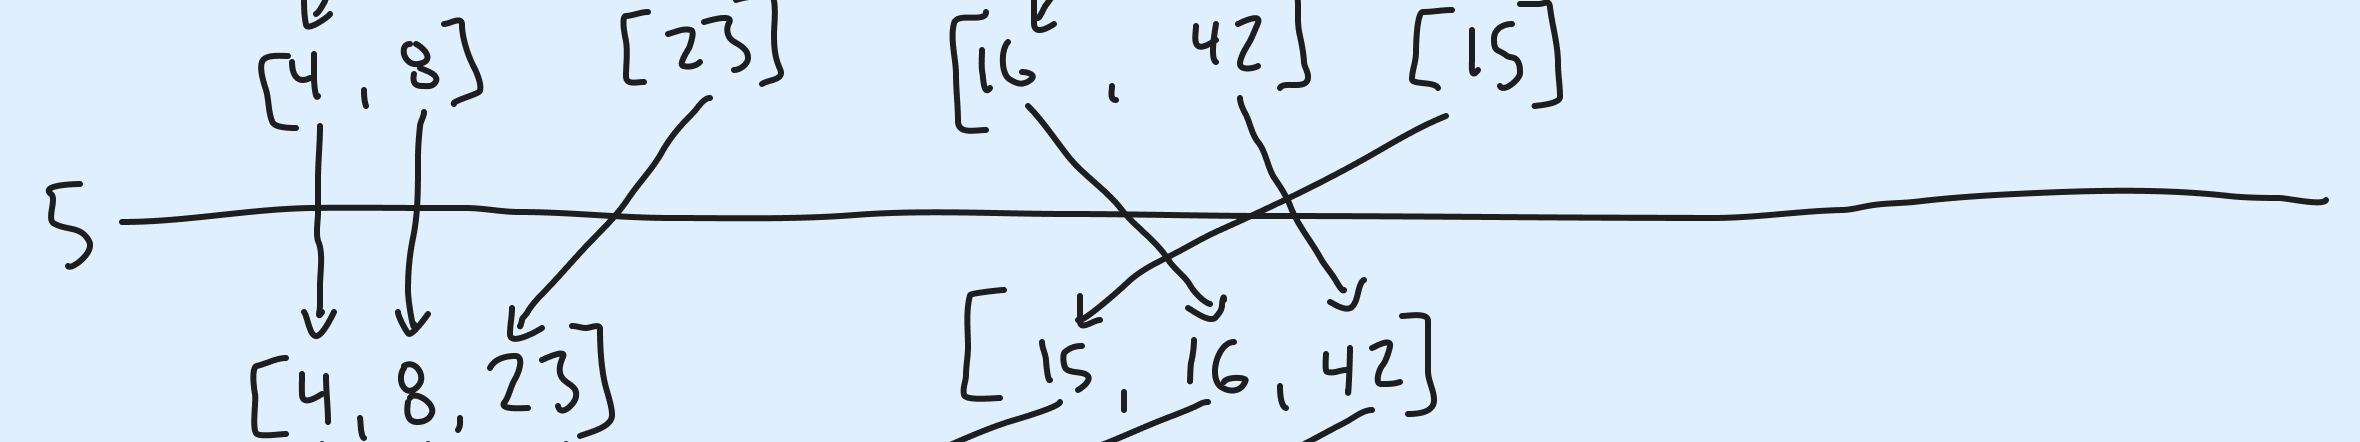 [4, 8] [23] [16, 42] [15]
5
[4, 8, 23] [15, 16, 42]